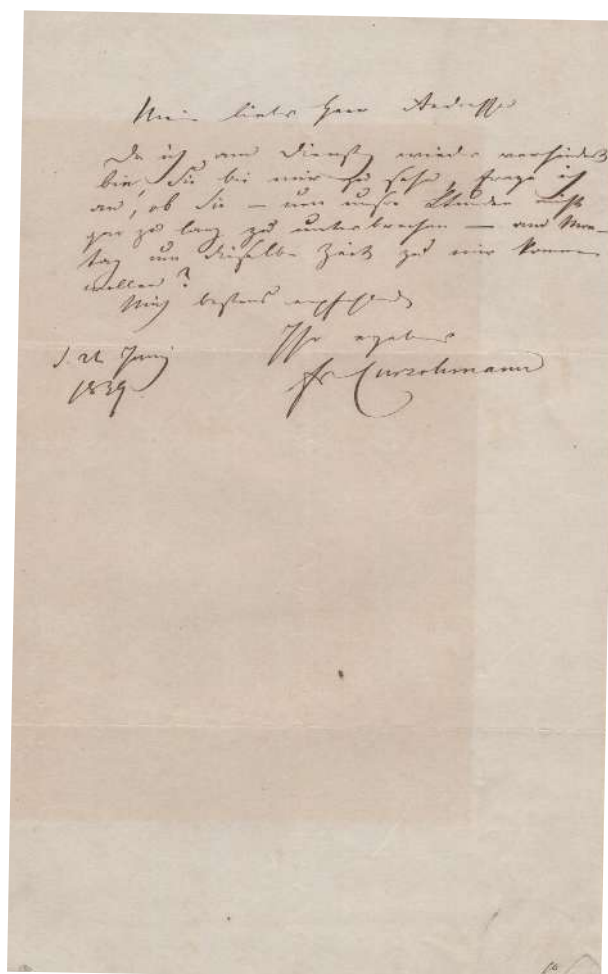 Mein lieber Herr
Da ich am Dienstag wieder verhindert
bin, Sie bei mir zu sehn, frage ich
an, ob Sie — um unsre Stunden nicht
gar zu lang zu unterbrechen — am Mon-
tag um dieselbe Zeit zu mir kommen
wollen?
Mich bestens empfehlend
Ihr ergebner
d. 21 Juni
Fr Curschmann
1839.